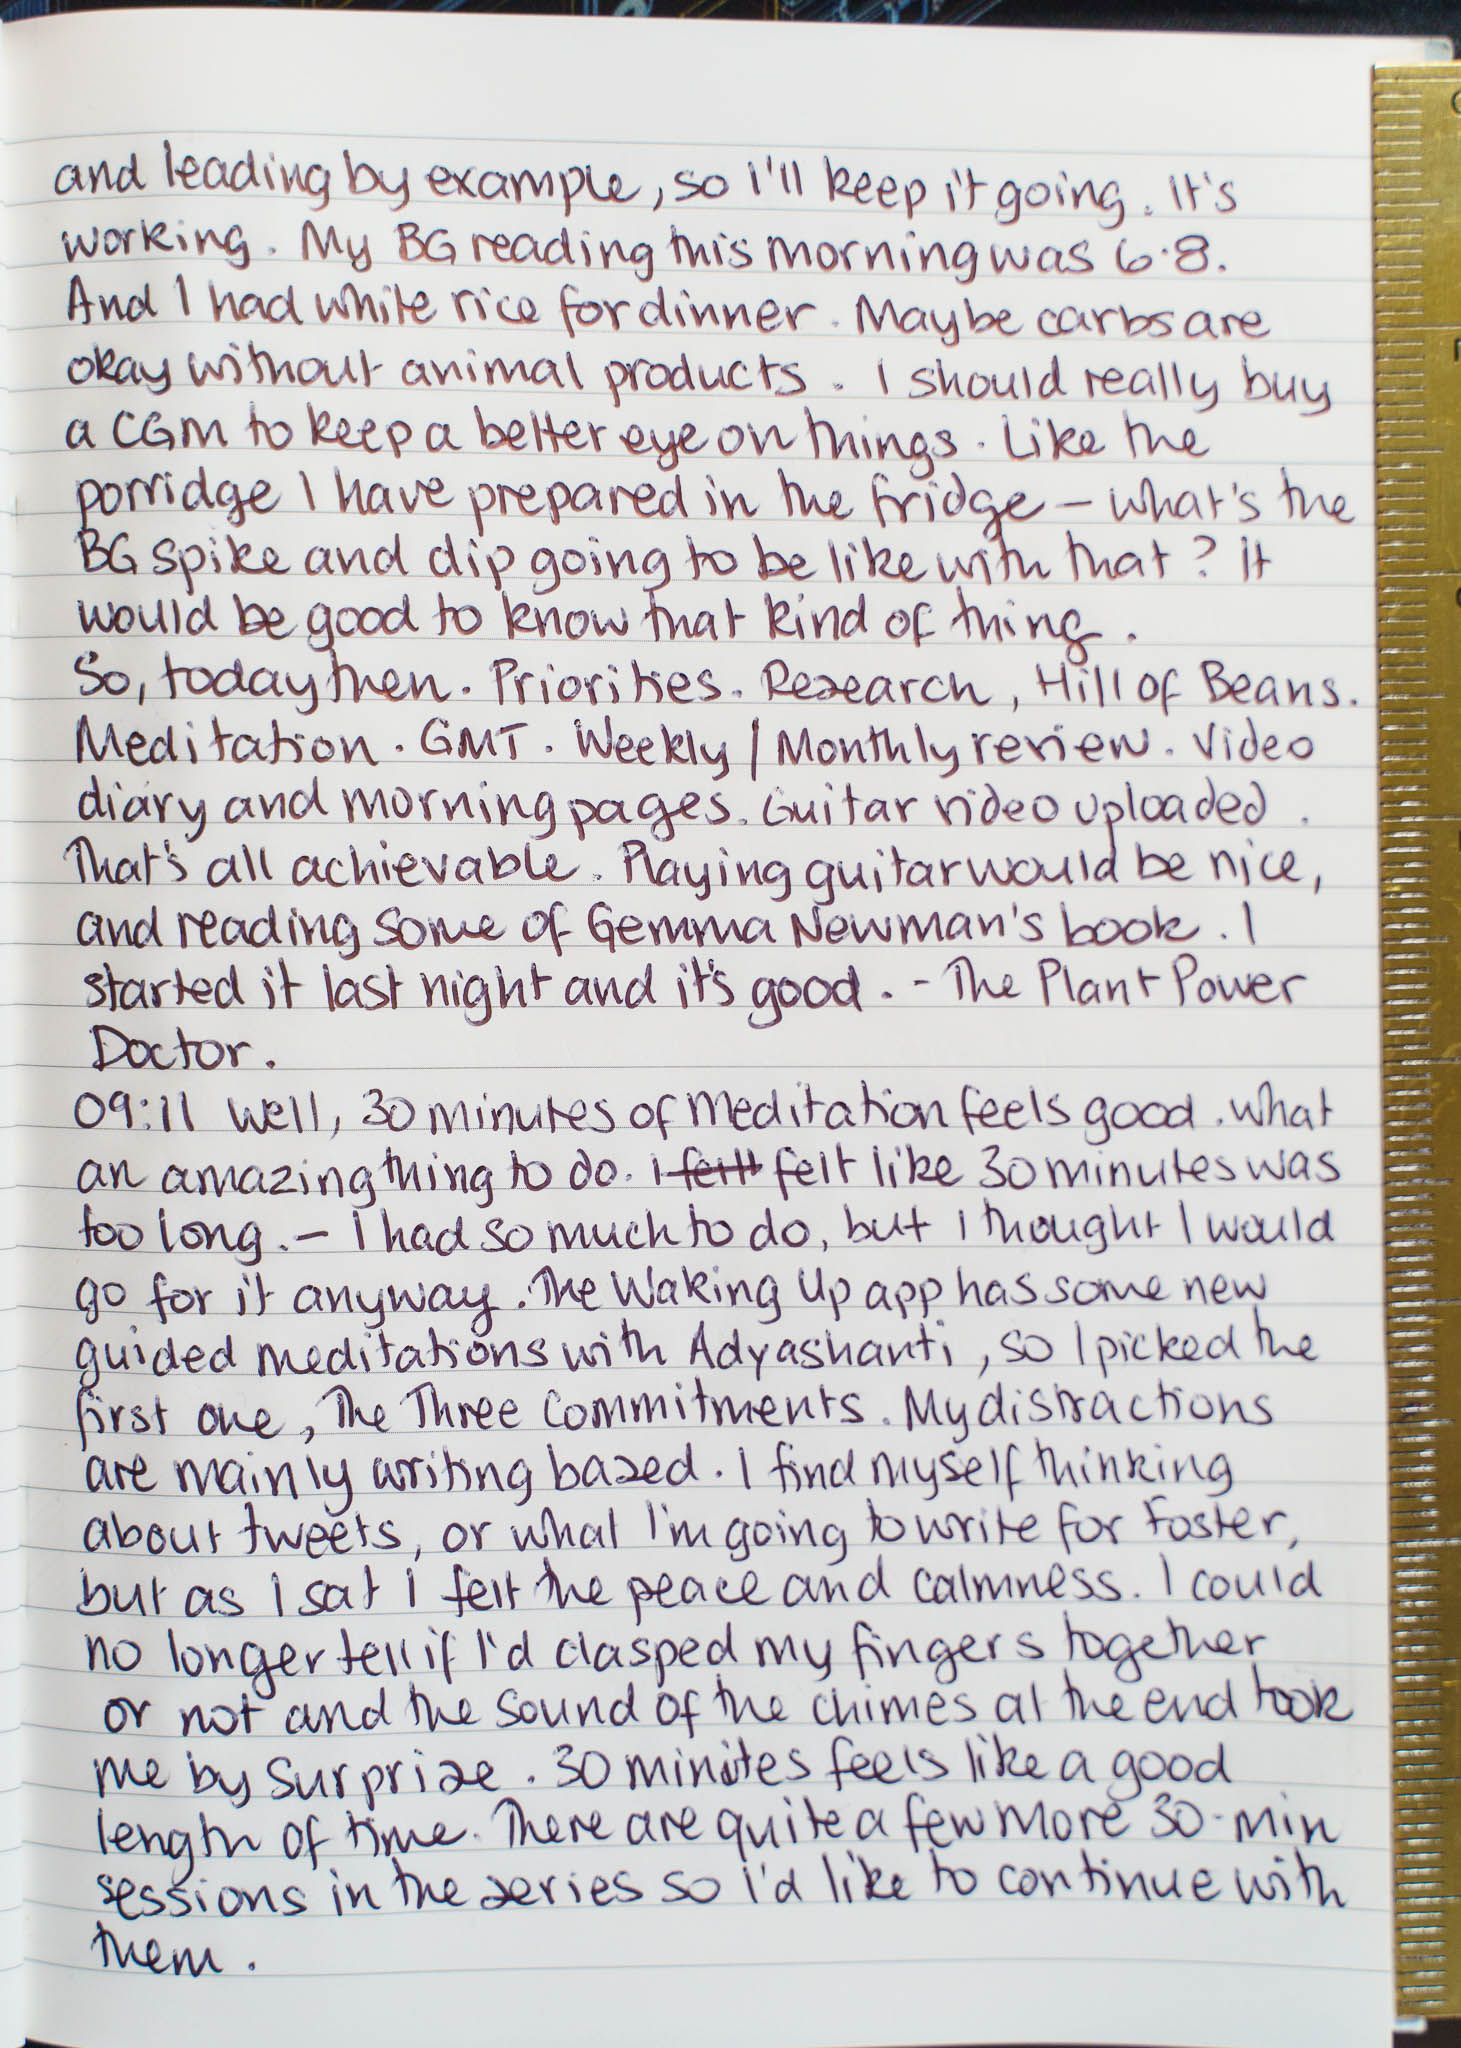 and leading by example, so I'll keep it going. It's
working. My BG reading this morning was 6.8.
And I had white rice for dinner. Maybe carbs are
okay without animal products. I should really buy
a CGM to keep a better eye on things. Like the
porridge I have prepared in the fridge – what's the
BG spike and dip going to be like with that? It
would be good to know that kind of thing.
So, today then. Priorities. Research, Hill of Beans.
Meditation. GMT. Weekly / Monthly review. Video
diary and morning pages. Guitar video uploaded.
That's all achievable. Playing guitar would be nice,
and reading some of Gemma Newman's book. I
started it last night and it's good. - The Plant Power
Doctor.
09:11 Well, 30 minutes of meditation feels good. What
an amazing thing to do. I felt like 30 minutes was
too long. – I had so much to do, but I thought I would
go for it anyway. The Waking Up app has some new
guided meditations with Adyashanti, so I picked the
first one, The Three Commitments. My distractions
are mainly writing based. I find myself thinking
about tweets, or what I'm going to write for Foster,
but as I sat I felt the peace and calmness. I could
no longer tell if I'd clasped my fingers together
or not and the sound of the chimes at the end took
me by surprise. 30 minutes feels like a good
length of time. There are quite a few more 30-min
sessions in the series so I'd like to continue with
them.